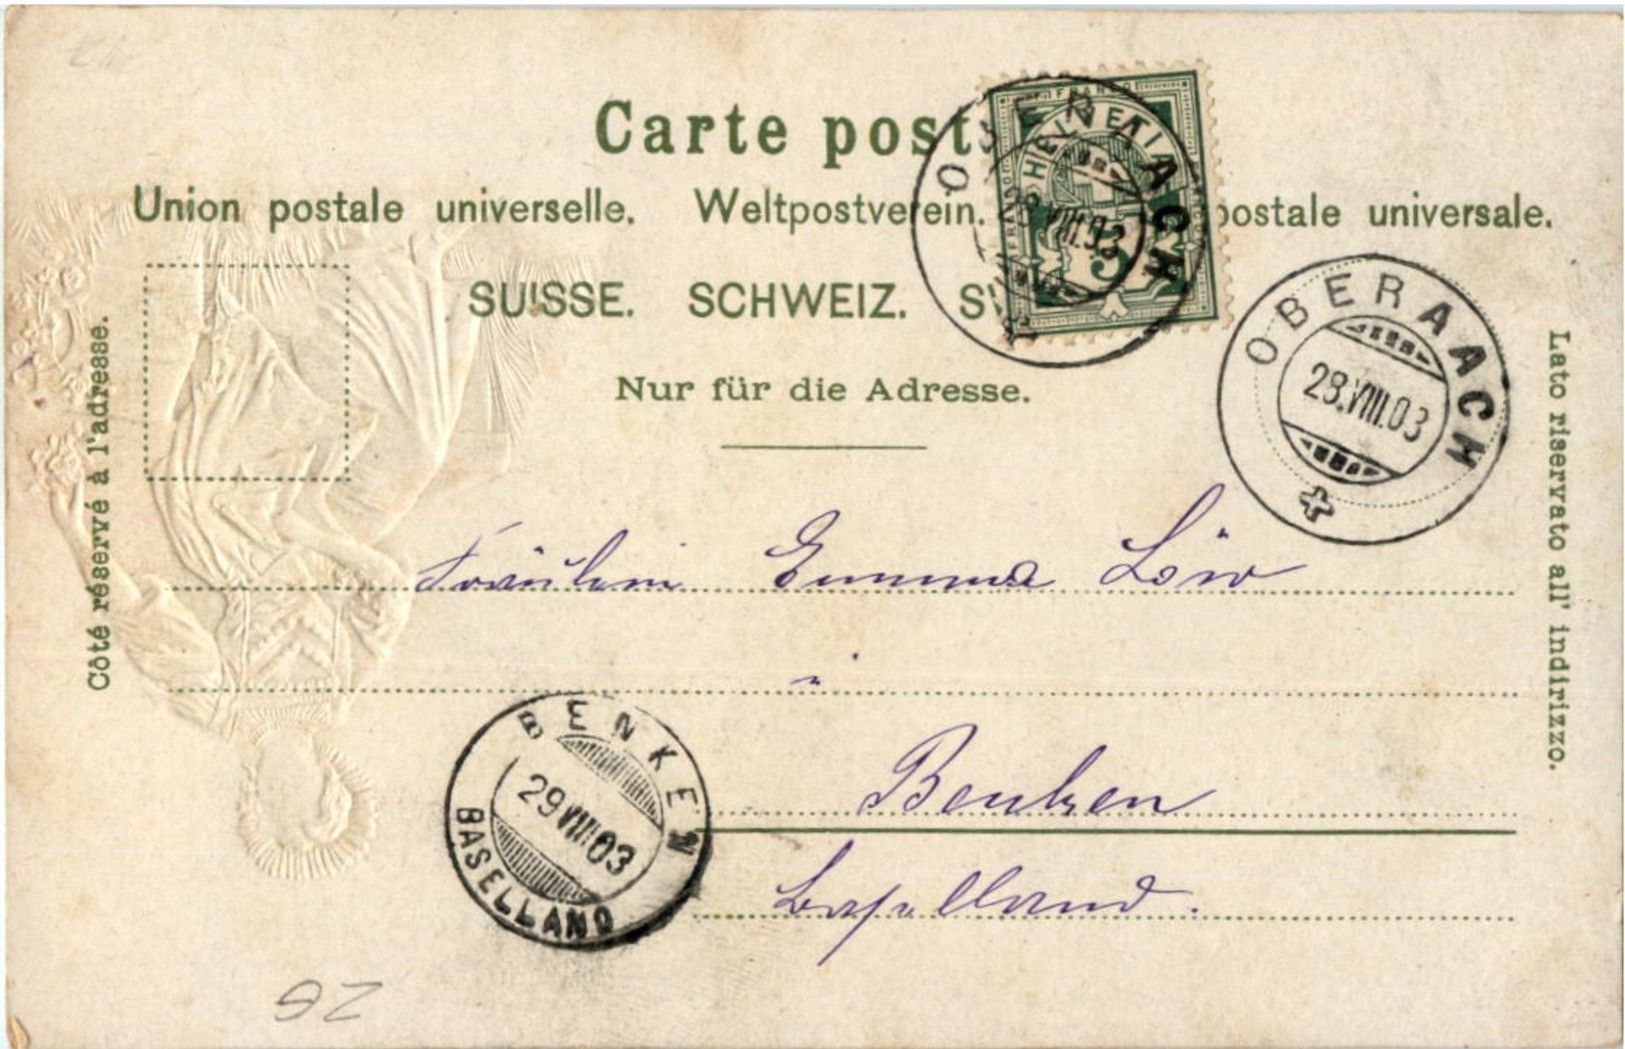 Carte post
Union postale universelle. Weltpostverein. postale universale.
SUISSE. SCHWEIZ. S
Nur für die Adresse.
Côté réservé à l'adresse.
Lato riservato all' indirizzo.
HELVETIA
5
OBERAACH
28.VIII.03
OBERAACH
28.VIII.03
Fräulein Emma Löw
in
Benken
Baselland.
BENKEN
29.VIII.03
BASELLAND